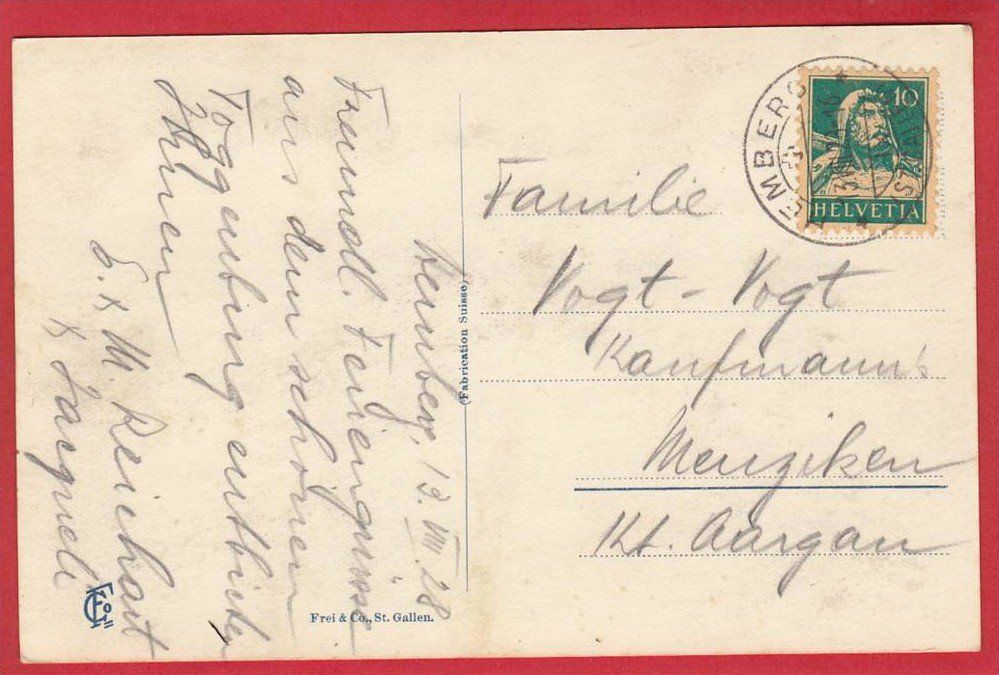 Hemberg, 13. VIII. 28
Freundl. Feriengrüsse
aus dem schönen
Toggenburg entbieten
Ihnen
E. x M. Reichart
x Jacqueli
(Fabrication Suisse)
Frei & Co., St. Gallen.
HEMBERG
10
HELVETIA
Familie
Vogt-Vogt
Kaufmann's
Menziken
Kt. Aargau